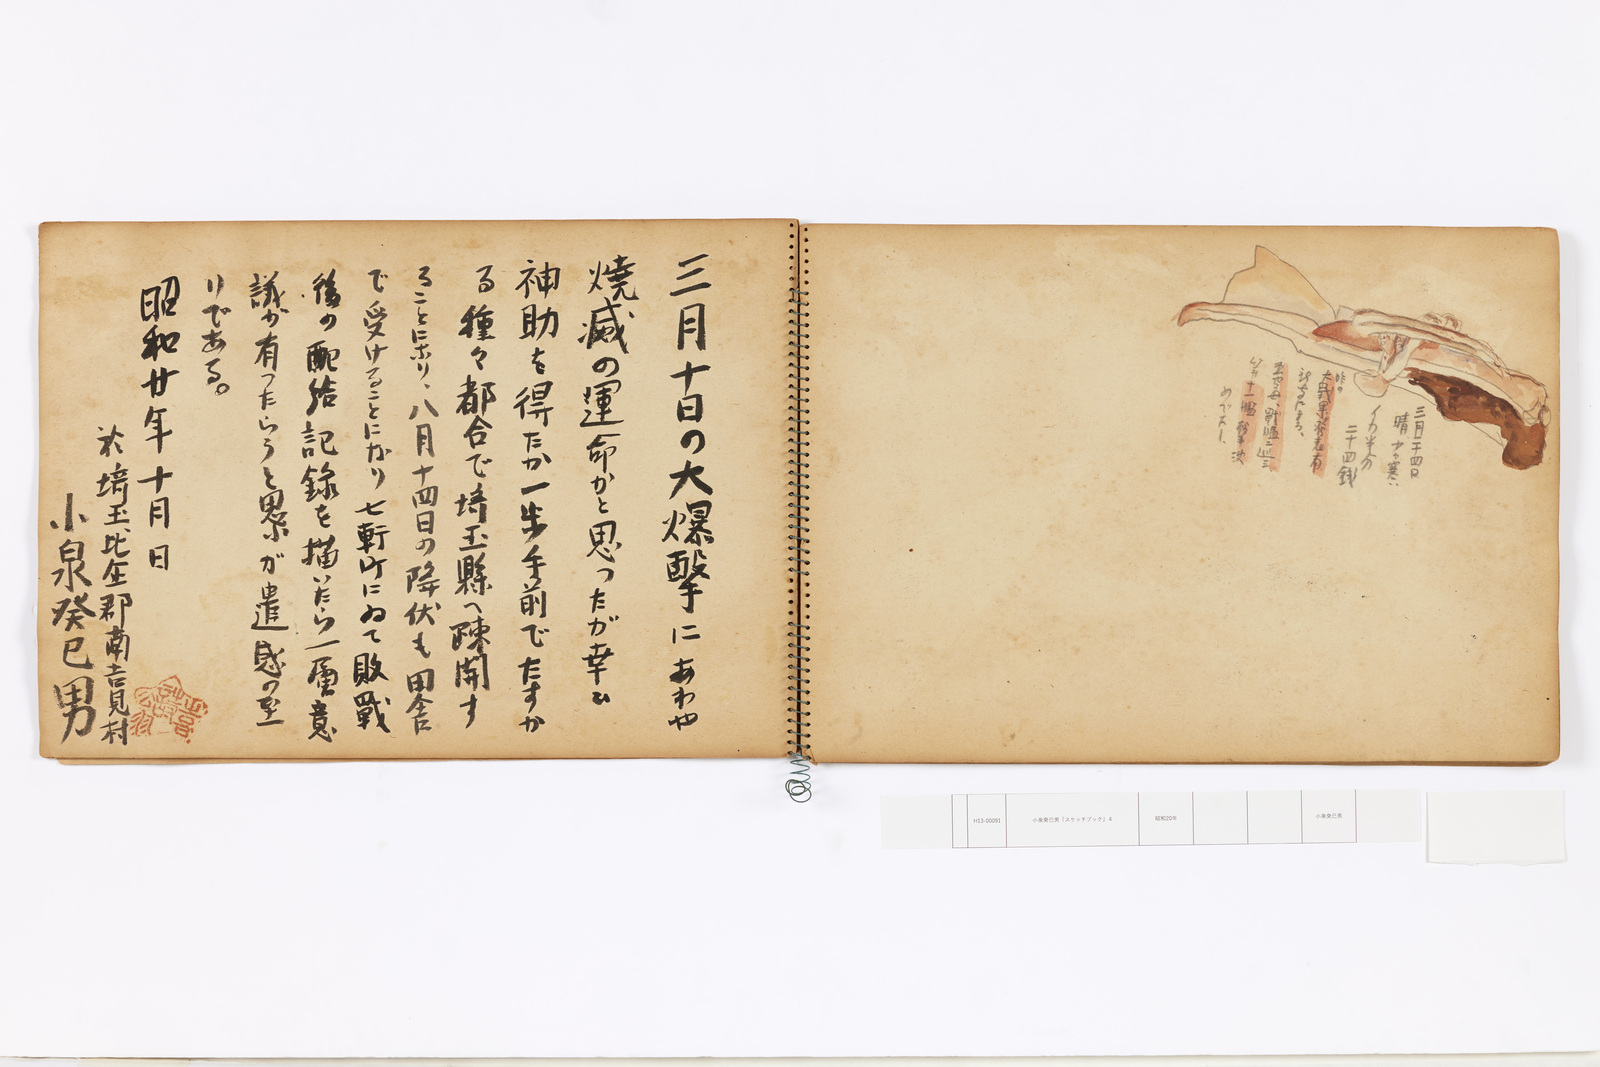 三月二十四日
晴 少々寒い
イカ半分
二十四銭
昨日
大戦果発表有
めでたし、
三月十日の大爆撃にあわや
焼滅の運命かと思つたが幸ひ
神助を得たか一歩手前でたすか
る種々都合で埼玉縣へ疎開す
ることになり、八月十四日の降伏も田舎
で受けることになり七軒町にゐて敗戰
後の配給記録を描いたら一層意
議が有つたらうと思ふが遺感の至
りである。
昭和廿年十月 日
於埼玉比企郡南吉見村
小泉癸巳男
H13-00091
小泉癸巳男「スケッチブック」4
昭和20年
小泉癸巳男